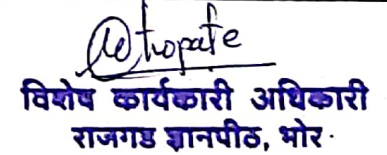 विशेष कार्यकारी अधिकारी
राजगड ज्ञानपीठ, भोर.